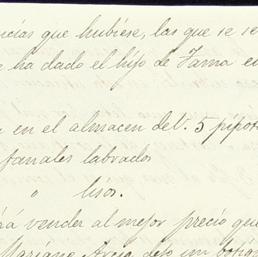 icias que hubiese, las que se se
ha dado el hijo de Fama en
en el almacen del. 5 pipot
fanales labrados
" lisos.
á vender al mejor precio que
Mariano dejo un botiq